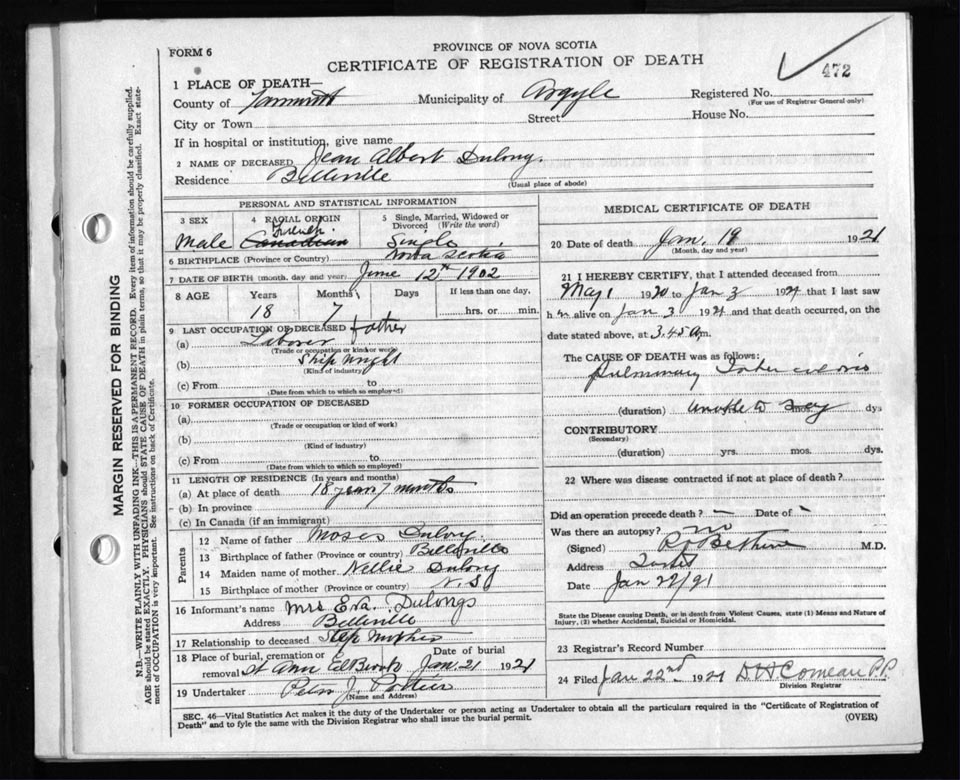 FORM 6
PROVINCE OF NOVA SCOTIA
CERTIFICATE OF REGISTRATION OF DEATH
472
1 PLACE OF DEATH—
County of Yarmouth Municipality of Argyle Registered No.
(For use of Registrar General only)
City or Town Street House No.
If in hospital or institution, give name
2 NAME OF DECEASED Jean Albert Dulong.
Residence Belleville
(Usual place of abode)
PERSONAL AND STATISTICAL INFORMATION
3 SEX 4 RACIAL ORIGIN 5 Single, Married, Widowed or Divorced (Write the word)
French
Male Canadian Single
6 BIRTHPLACE (Province or Country) Nova Scotia
7 DATE OF BIRTH (month, day and year) June 12th 1902
8 AGE Years Months Days If less than one day,
18 7 hrs. or min.
9 LAST OCCUPATION OF DECEASED father
(a) Laborer
(Trade or occupation or kind of work)
(b) Ship Wright
(Kind of industry)
(c) From to
(Date from which to which so employed)
10 FORMER OCCUPATION OF DECEASED
(a)
(Trade or occupation or kind of work)
(b)
(Kind of industry)
(c) From to
(Date from which to which so employed)
11 LENGTH OF RESIDENCE (In years and months)
(a) At place of death 18 years 7 months
(b) In province
(c) In Canada (if an immigrant)
Parents
12 Name of father Moses Dulong
13 Birthplace of father (Province or country) Belleville
14 Maiden name of mother Nellie Dulong
15 Birthplace of mother (Province or country) N.S
16 Informant's name Mrs Eva. Dulong
Address Belleville
17 Relationship to deceased Step Mother
18 Place of burial, cremation or removal St Ann Eel Brook Date of burial Jan. 21 1921
19 Undertaker Peter J. Pottier
(Name and Address)
MEDICAL CERTIFICATE OF DEATH
20 Date of death Jan. 19 1921
(Month, day and year)
21 I HEREBY CERTIFY, that I attended deceased from
May 1 1920 to Jan 3 1921 that I last saw
him alive on Jan 3 1921 and that death occurred, on the
date stated above, at 3.45 a.m.
The CAUSE OF DEATH was as follows:
Pulmonary Tuberculosis
(duration) unable to say mos. dys
CONTRIBUTORY
(Secondary)
(duration) yrs. mos. dys.
22 Where was disease contracted if not at place of death?
Did an operation precede death? — Date of -
Was there an autopsy? no
(Signed) Bethune M.D.
Address Tusket
Date Jan 22/21
State the Disease causing Death, or in death from Violent Causes, state (1) Means and Nature of
Injury, (2) whether Accidental, Suicidal or Homicidal.
23 Registrar's Record Number
24 Filed Jan 22nd 1921 Comeau P.P.
Division Registrar
SEC. 46—Vital Statistics Act makes it the duty of the Undertaker or person acting as Undertaker to obtain all the particulars required in the "Certificate of Registration of
Death" and to fyle the same with the Division Registrar who shall issue the burial permit. (OVER)
MARGIN RESERVED FOR BINDING
N.B.—WRITE PLAINLY WITH UNFADING INK—THIS IS A PERMANENT RECORD. Every item of information should be carefully supplied.
AGE should be stated EXACTLY. PHYSICIANS should STATE CAUSE OF DEATH in plain terms, so that it may be properly classified. Exact statement
of OCCUPATION is very important. See instructions on back of Certificate.